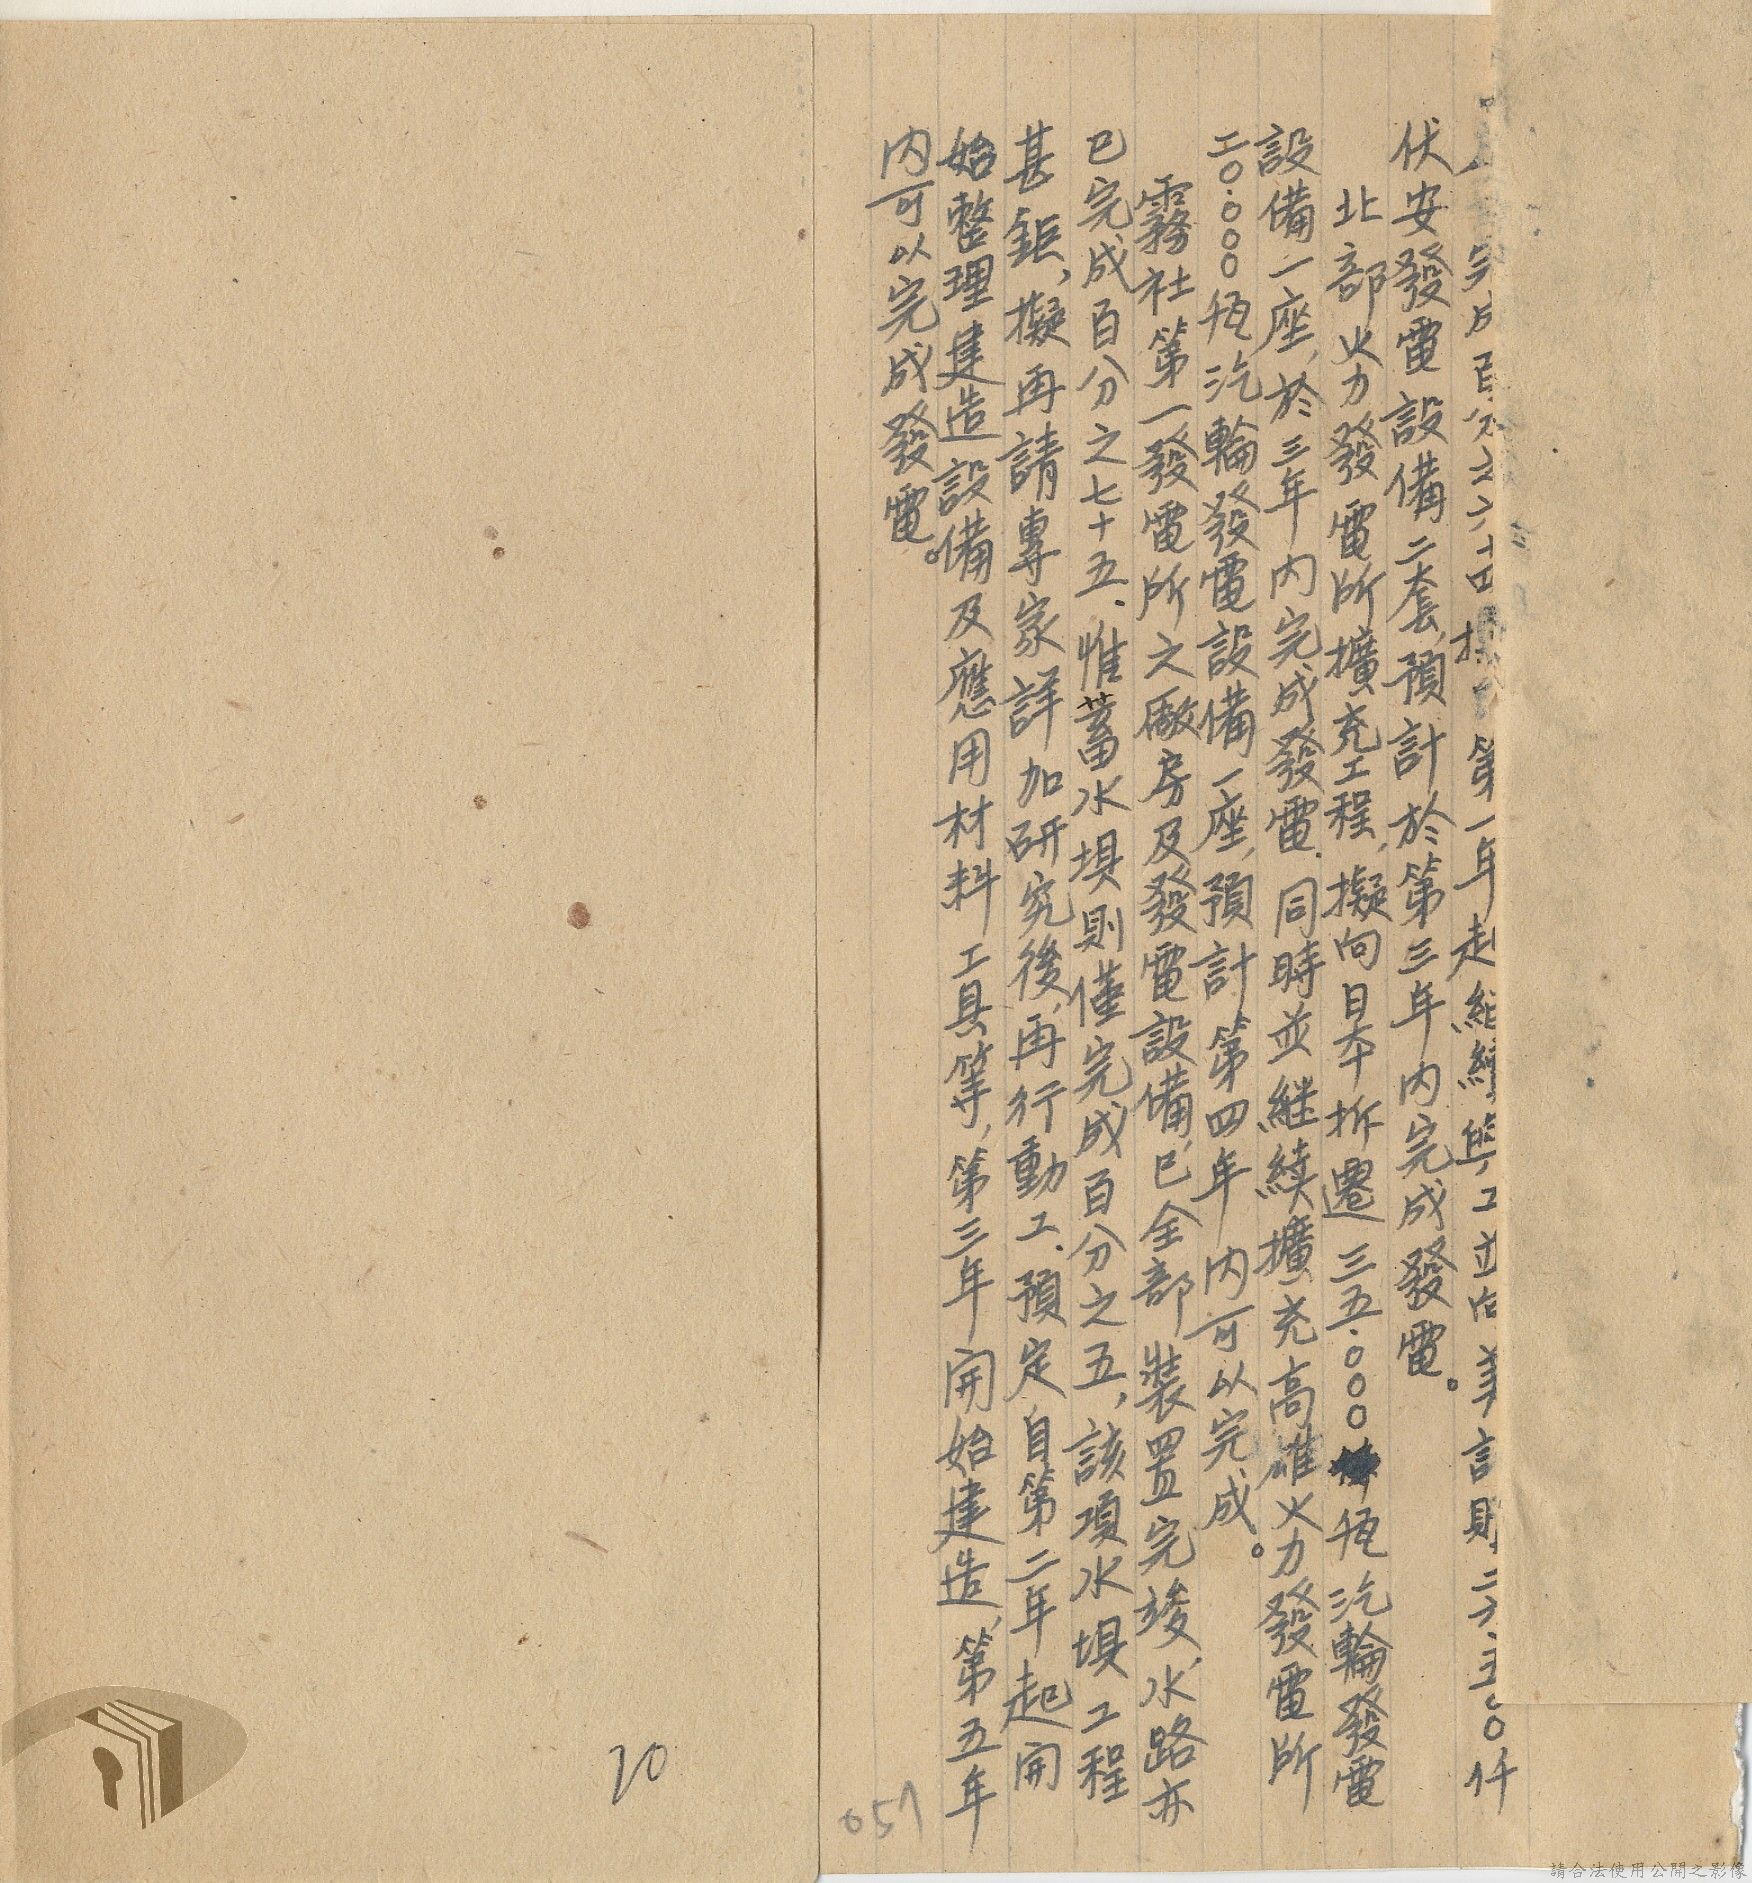 完成百分之六十 第一年起繼續 工 計 二六.五〇〇仟
伏安發電設備二套,預計於第三年內完成發電。
北部火力發電所擴充工程,擬向日本拆遷三五.〇〇〇瓩汽輪發電
設備一座,於三年內完成發電.同時並継續擴充高雄火力發電所
二〇.〇〇〇瓩汽輪發電設備一座,預計第四年內可以完成。
霧社第一發電所之廠房及發電設備,已全部裝置完竣,水路亦
已完成百分之七十五.惟蓄水埧則僅完成百分之五,該項水埧工程
甚鉅,擬再請專家詳加研究後,再行動工.預定自第二年起開
始整理建造設備及應用材料工具等,第三年開始建造,第五年
內可以完成發電。
20
057
請合法使用公開之影像